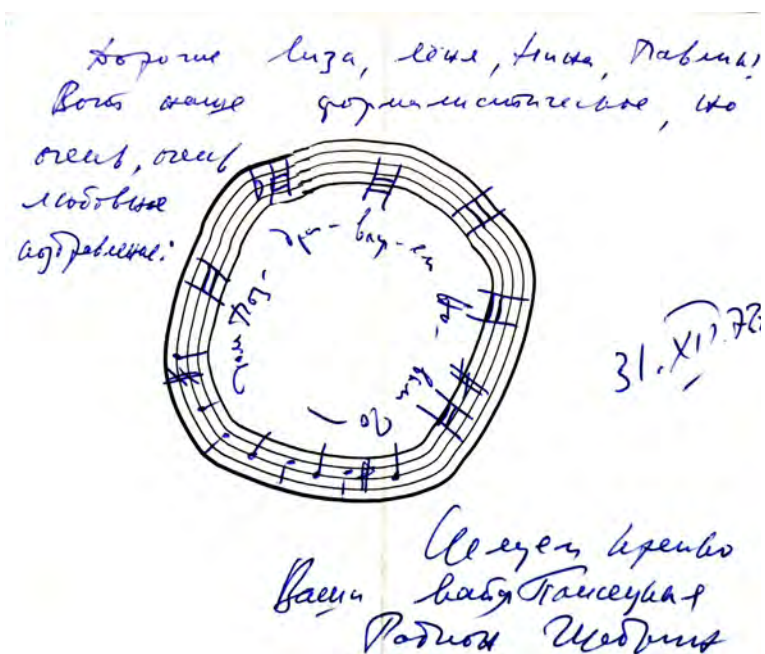 Дорогие Лиза, Лёня, Нина, Павлик!
Вот наше формалистическое, но
очень, очень
любовное
поздравление:
Поз-дра-вля-ем
Но-вым го-дом
31.XII.72
Целуем крепко
Ваши Майя Плисецкая
Родион Щедрин